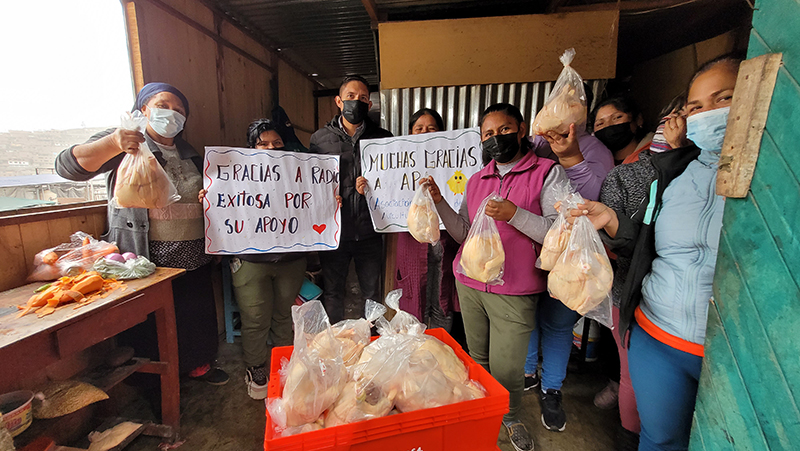 GRACIAS A RADIO
EXITOSA POR
SU APOYO
MUCHAS GRACIAS
A AP